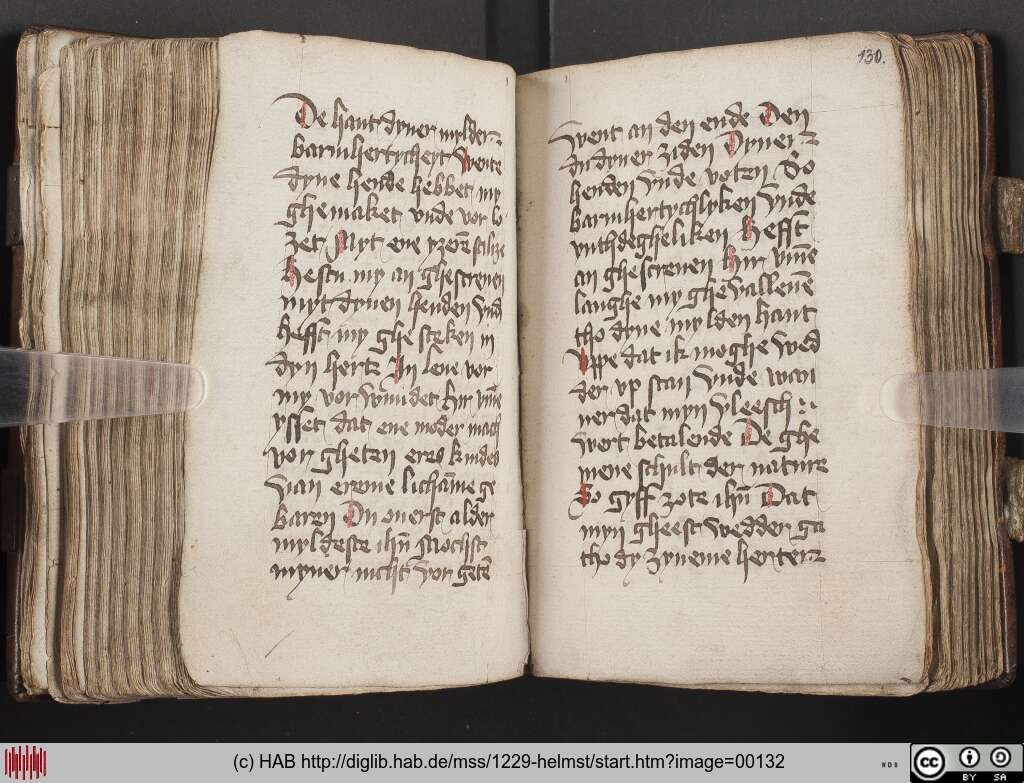 De hant dyner mylden
barmhertycheyt Wente
dyne hende hebbet my
ghemaket vnde vor lo
zet Myt ene yzerē
Hestu my an ghescreuen
myt dynen henden Vnd
hefft my ghe steken in
dyn hertz In leue vor
my vor wundet hir vm̄e
ysset dat ene moder mach
vor gheten eres kindes
Van erene lichāme ge
baren Du ouerst alder
myldeste ihū Mochst
myner nicht vor getē
went an den ende Den
In dyner ziden Dyner
henden Vnde voten So
barmhertychlyken Vnde
vnthdegheliken Hefft
an ghescreuen Hir vm̄e
langhe my ghe vallenē
tho dyne mylden hant
Vppe dat ik moghe wed
der vp stan Vnde wan
ner dat myn Vleesch
wert betalende De ghe
mene schult der nature
So gyff zote ihū Dat
myn gheest Wedder ga
tho dy zyneme herter
130.
(c) HAB http://diglib.hab.de/mss/1229-helmst/start.htm?image=00132
WDB
cc
BY SA